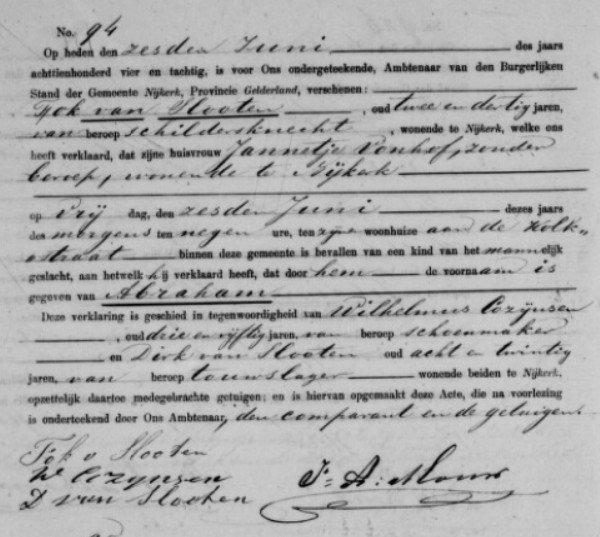 No. 94
Op heden den zesden Juni des jaars
achttienhonderd vier en tachtig, is voor Ons ondergeteekende, Ambtenaar van den Burgerlijken
Stand der Gemeente Nijkerk, Provincie Gelderland, verschenen:
Fok van Slooten, oud twee en dertig jaren,
van beroep schildersknecht, wonende te Nijkerk, welke ons
heeft verklaard, dat zijne huisvrouw Jannetje Vonhof, zonder
beroep, wonende te Nijkerk
op Vrij dag, den zesden Juni dezes jaars
des morgens ten negen ure, ten zijne woonhuize aan de Kolk„
straat binnen deze gemeente is bevallen van een kind van het mannelijk
geslacht, aan hetwelk hij verklaard heeft, dat door hem de voornaam is
gegeven van Abraham
Deze verklaring is geschied in tegenwoordigheid van Wilhelmus Cozijnsen
, oud drie en vijftig jaren, van beroep schoenmaker
en Dirk van Slooten oud acht en twintig
jaren, van beroep touwslager wonende beiden te Nijkerk,
opzettelijk daartoe medegebrachte getuigen; en is hiervan opgemaakt deze Acte, die na voorlezing
is onderteekend door Ons Ambtenaar, den comparant en de getuigen.
Fok v Slooten
W Cozynsen
D van Slooten